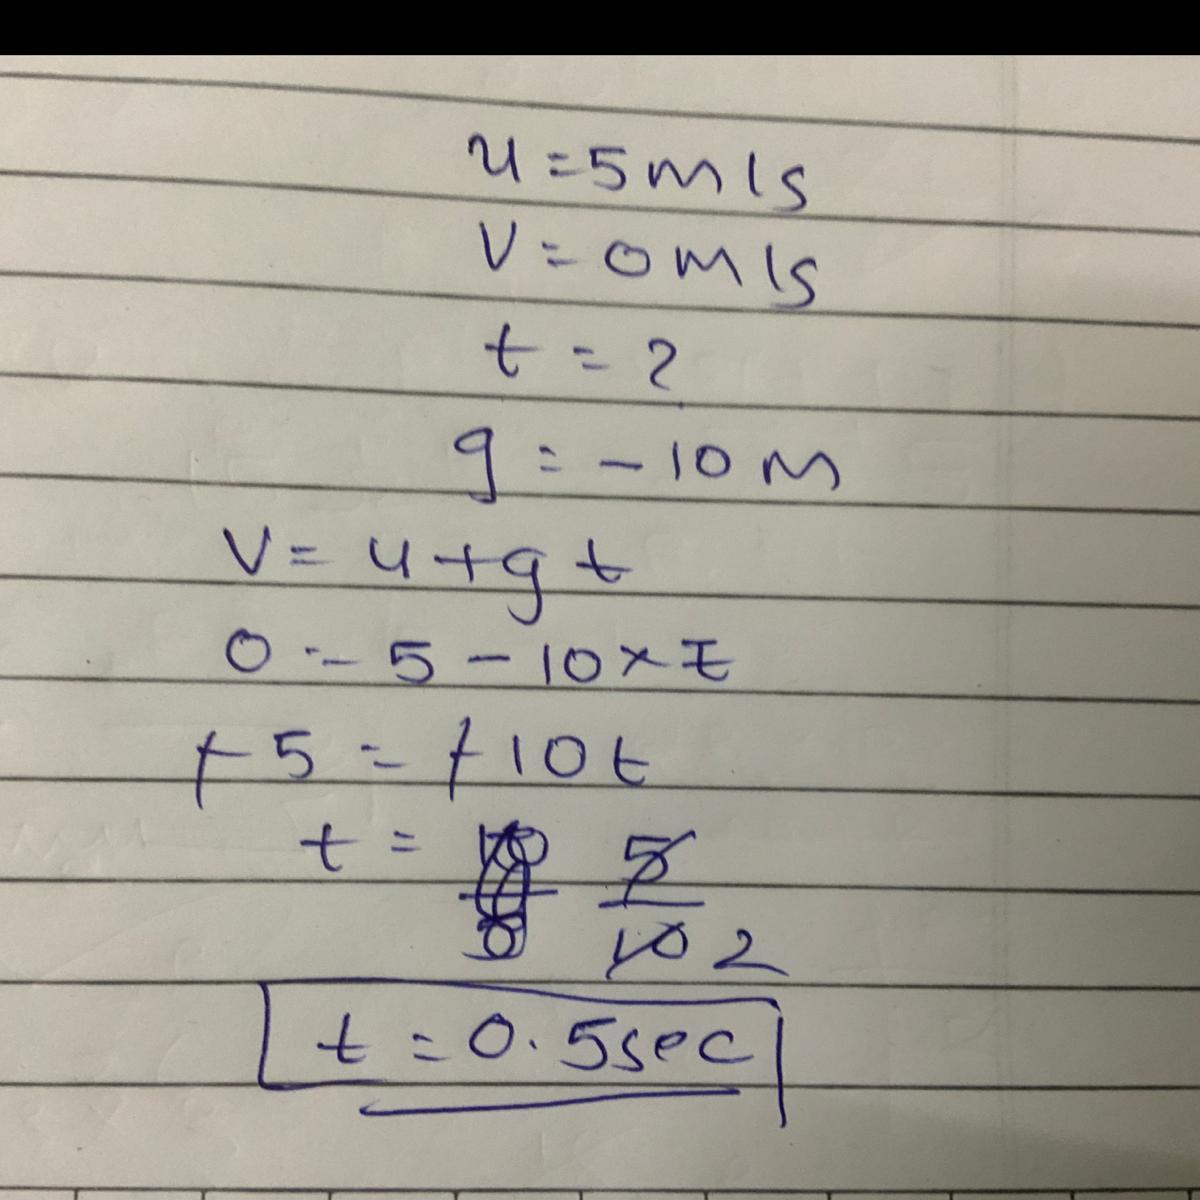 u = 5 m/s
v = 0 m/s
t = ?
g = -10 m
v = u + g t
0 = 5 - 10 x t
-5 = -10 t
t = 5/10 2
t = 0.5 sec